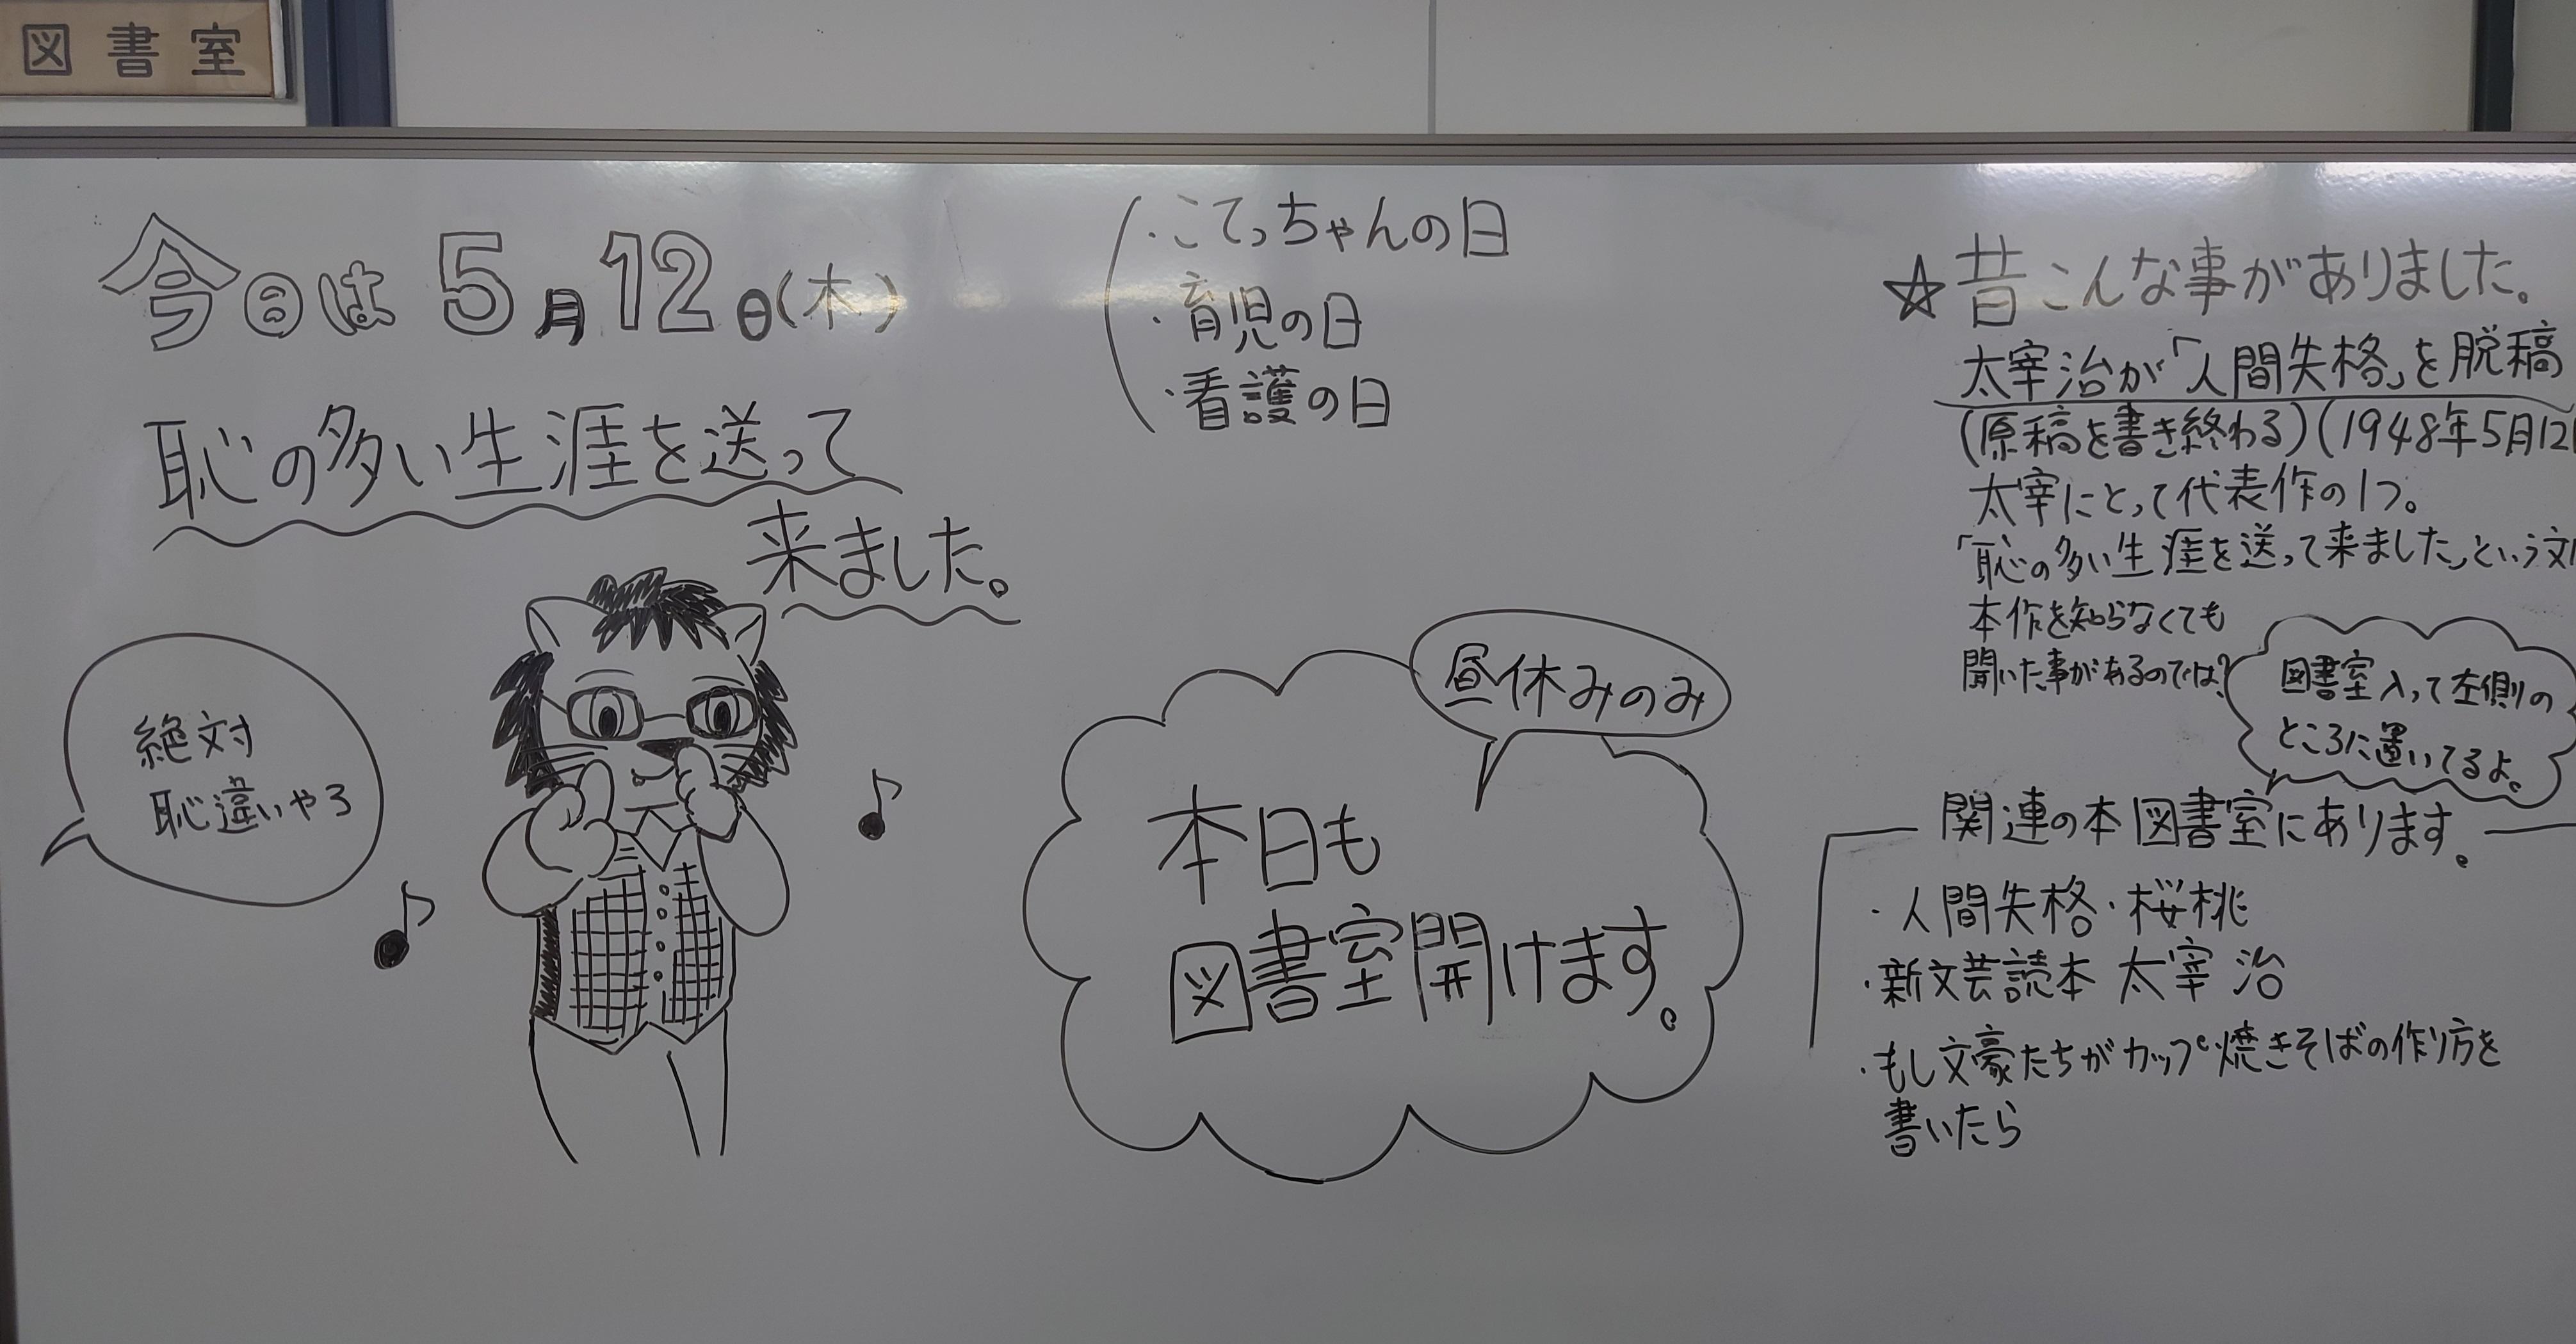 図書室
今日は5月12日(木)
・こてっちゃんの日
・育児の日
・看護の日
恥の多い生涯を送って
来ました。
絶対
恥違いやろ
昼休みのみ
本日も
図書室開けます。
☆昔こんな事がありました。
太宰治が「人間失格」を脱稿
(原稿を書き終わる)(1948年5月12
太宰にとって代表作の1つ。
「恥の多い生涯を送って来ました」という文
本作を知らなくても
聞いた事があるのでは?
図書室入って左側の
ところに置いてるよ。
関連の本図書室にあります。
・人間失格・桜桃
・新文芸読本 太宰治
・もし文豪たちがカップ焼きそばの作り方を
書いたら